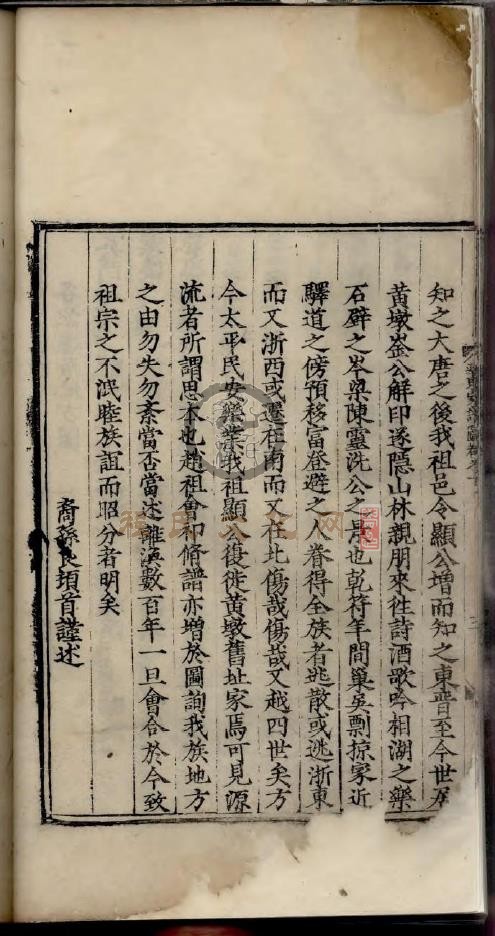 知之大唐之後我祖邑令顯公增而知之東晉至今世居
黃墩崟公解印遂隱山林親朋來徃詩酒歌吟相湖之樂
石壁之岑梁陳靈洗公之是也乾符年間巢吳剽掠家近
驛道之傍預移富登避之人眷得全族者逃散或逃浙東
而又浙西或遷在南而又在北傷哉傷哉又越四世矣方
今太平民安樂業我祖顯公復徙黃墩舊址家焉可見源
流者所謂思本也趙祖會卬脩譜亦增於圖詢我族地方
之由勿失勿紊當否當述離流數百年一旦會合於今致
祖宗之不泯睦族誼而昭分者明矣
裔孫良頊首謹述